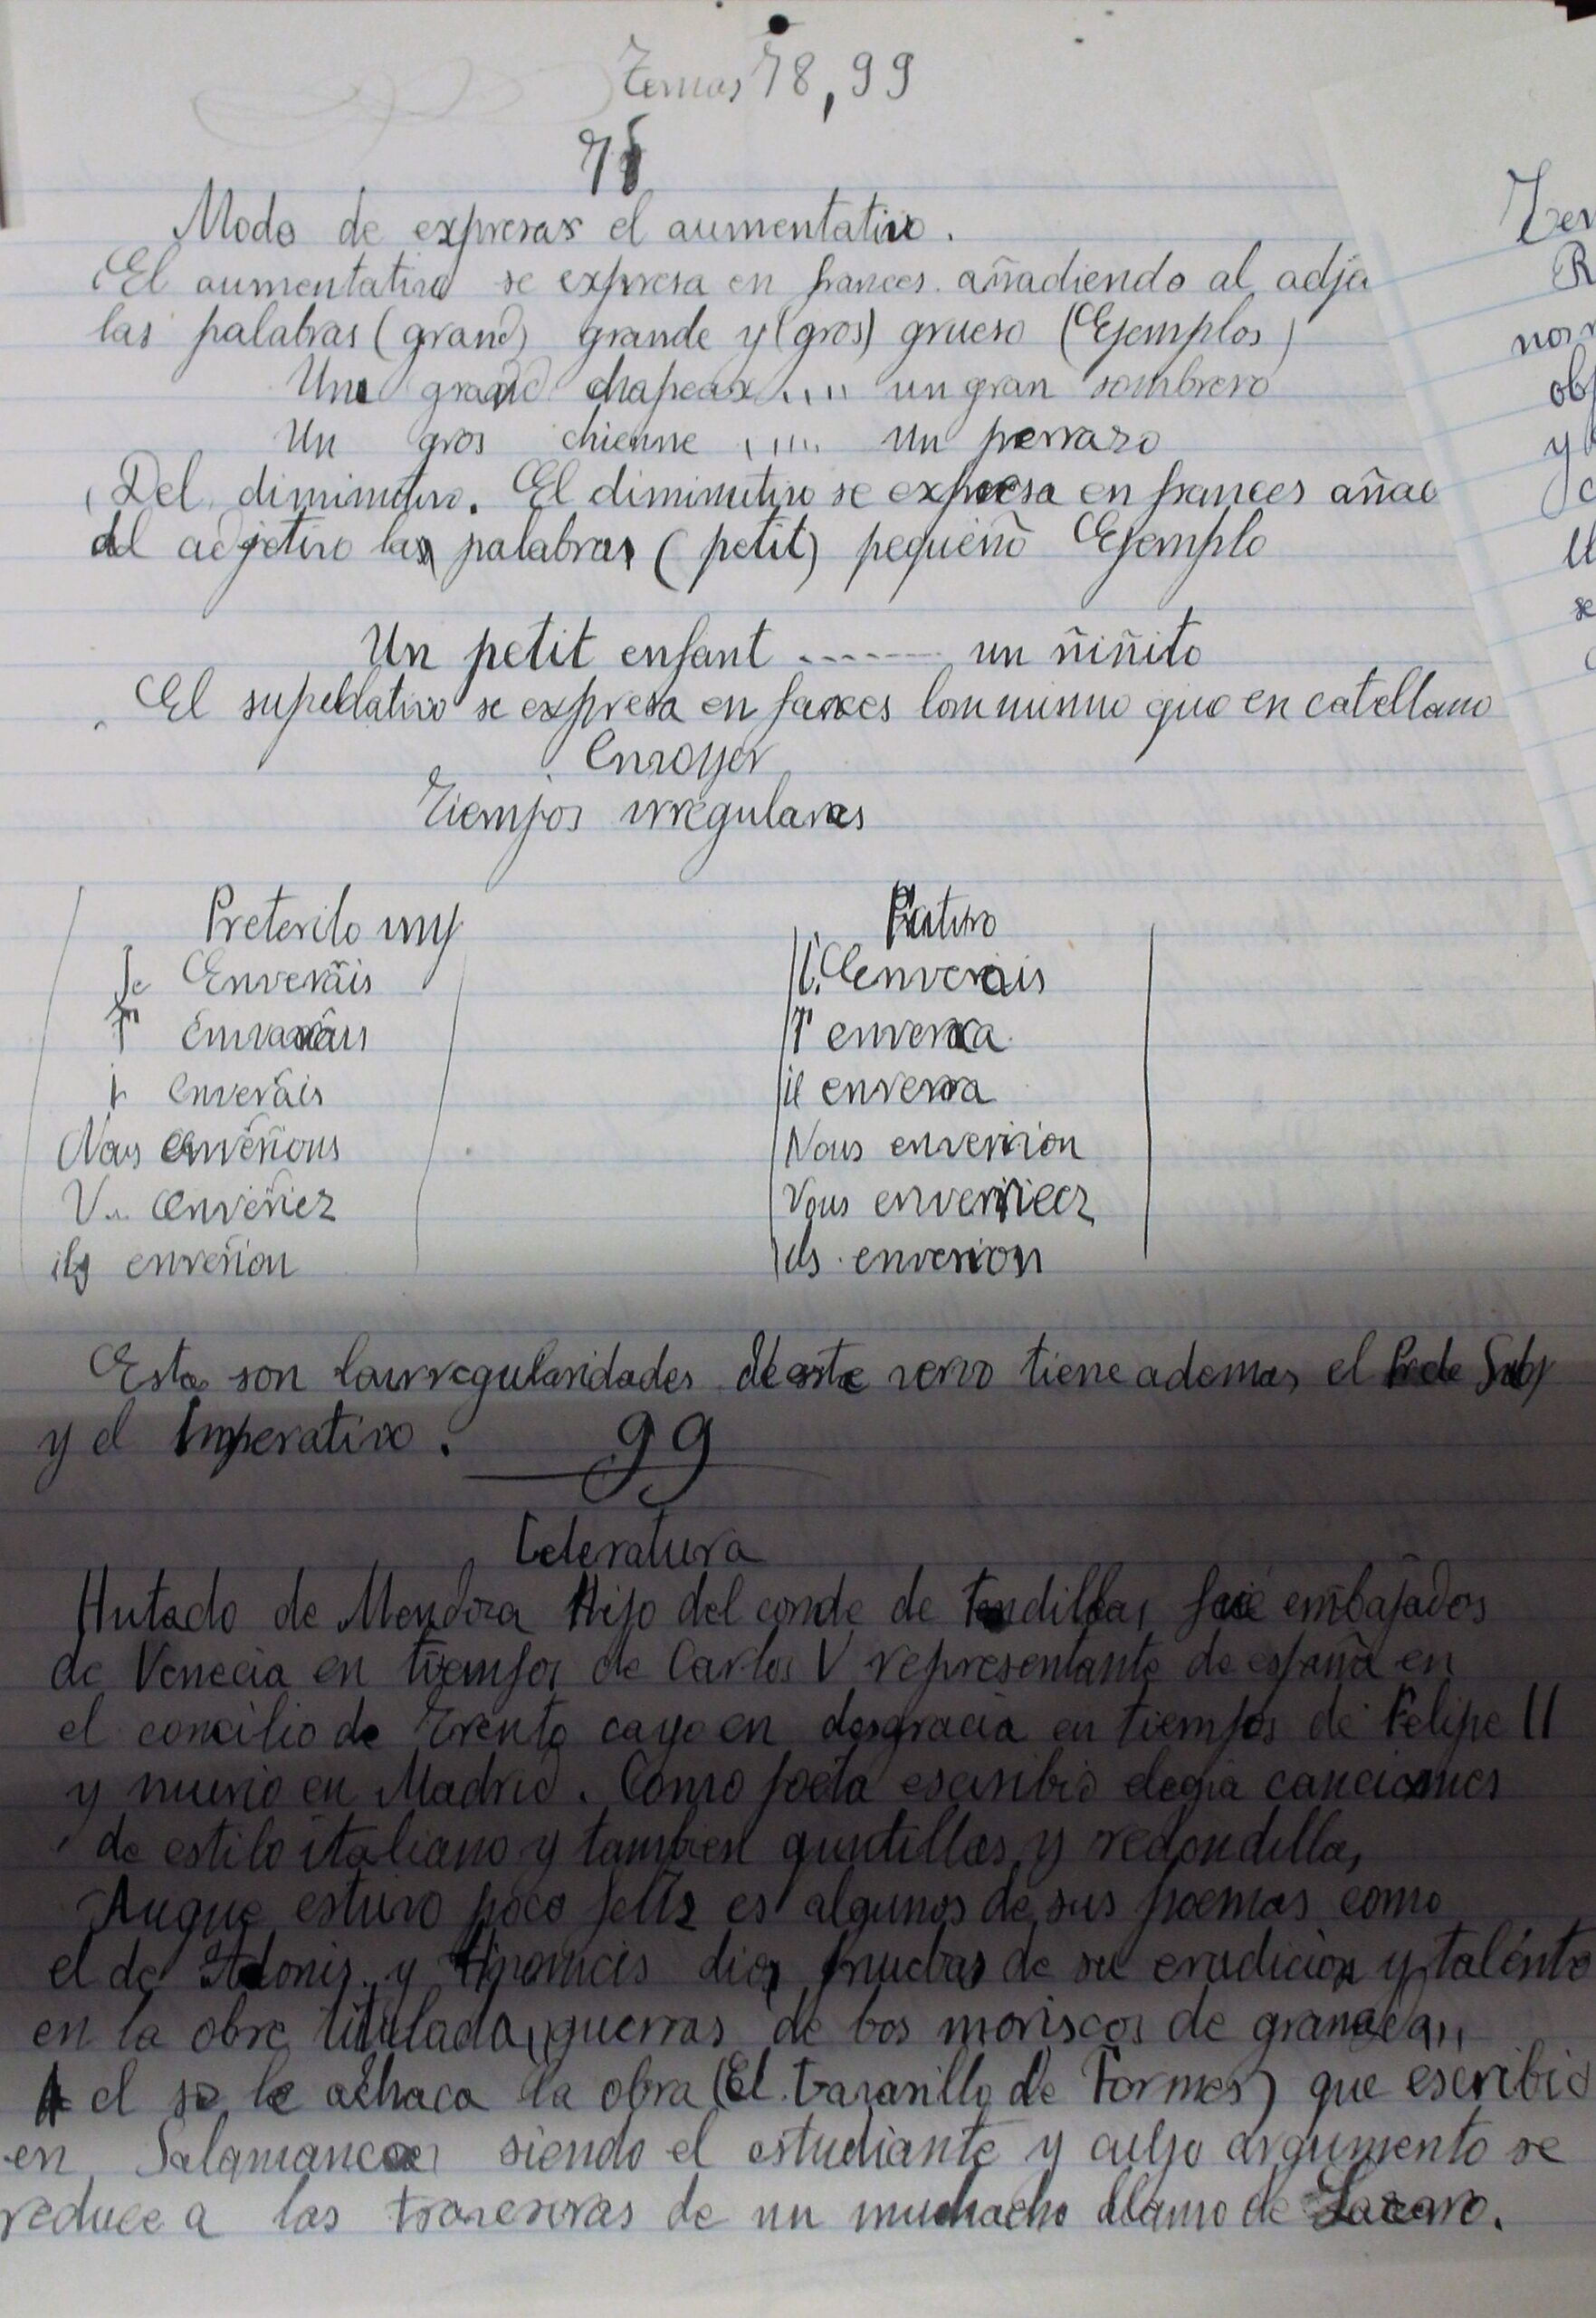 Temas 78, 99
78
Modo de expresar el aumentativo.
El aumentativo se expresa en frances añadiendo al adje
las palabras (grand) grande y (gros) grueso (Ejemplos)
Un grand chapeax .... un gran sombrero
Un gros chienne ..... un perrazo
Del diminutivo. El diminutivo se expresa en frances añad
al adjetivo las palabras (petit) pequeño Ejemplo
Un petit enfant ------- un ñiñito
El supeldativo se expresa en
Envoyer
Tiempos irregulares
Preterito imp Futuro
Je Enverais enverais
T enverra
enverais il enverra
Nous envérions Nous enverrion
V... envériez Vous enverrieez
ils enverion ils enverion
Estas son las irregularidades de este vervo tiene ademas el Pre de Subj
y el Imperativo. 99
Leteratura
Hutado de Mendoza Hijo del conde de tendillas fue embajados
de Venecia en tiempos de Carlos V representante de españa en
el concilio de Trento cayo en desgracia en tiempos de Felipe II
y murio en Madrid. Como poeta escribio elegia canciones
de estilo italiano y tambien quntillas y redondillas
Auque estuvo poco feliz es algunos de sus poemas como
el de Adonis y dio pruebas de su erudicion y talento
en la obre titulada "guerras de los moriscos de granada"
A el se le achaca la obra (El Lazarillo de Tormes) que escribio
en Salamanca siendo el estudiante y cullo argumento se
reduce a las travesuras de un muchacho llamo de Lazaro.